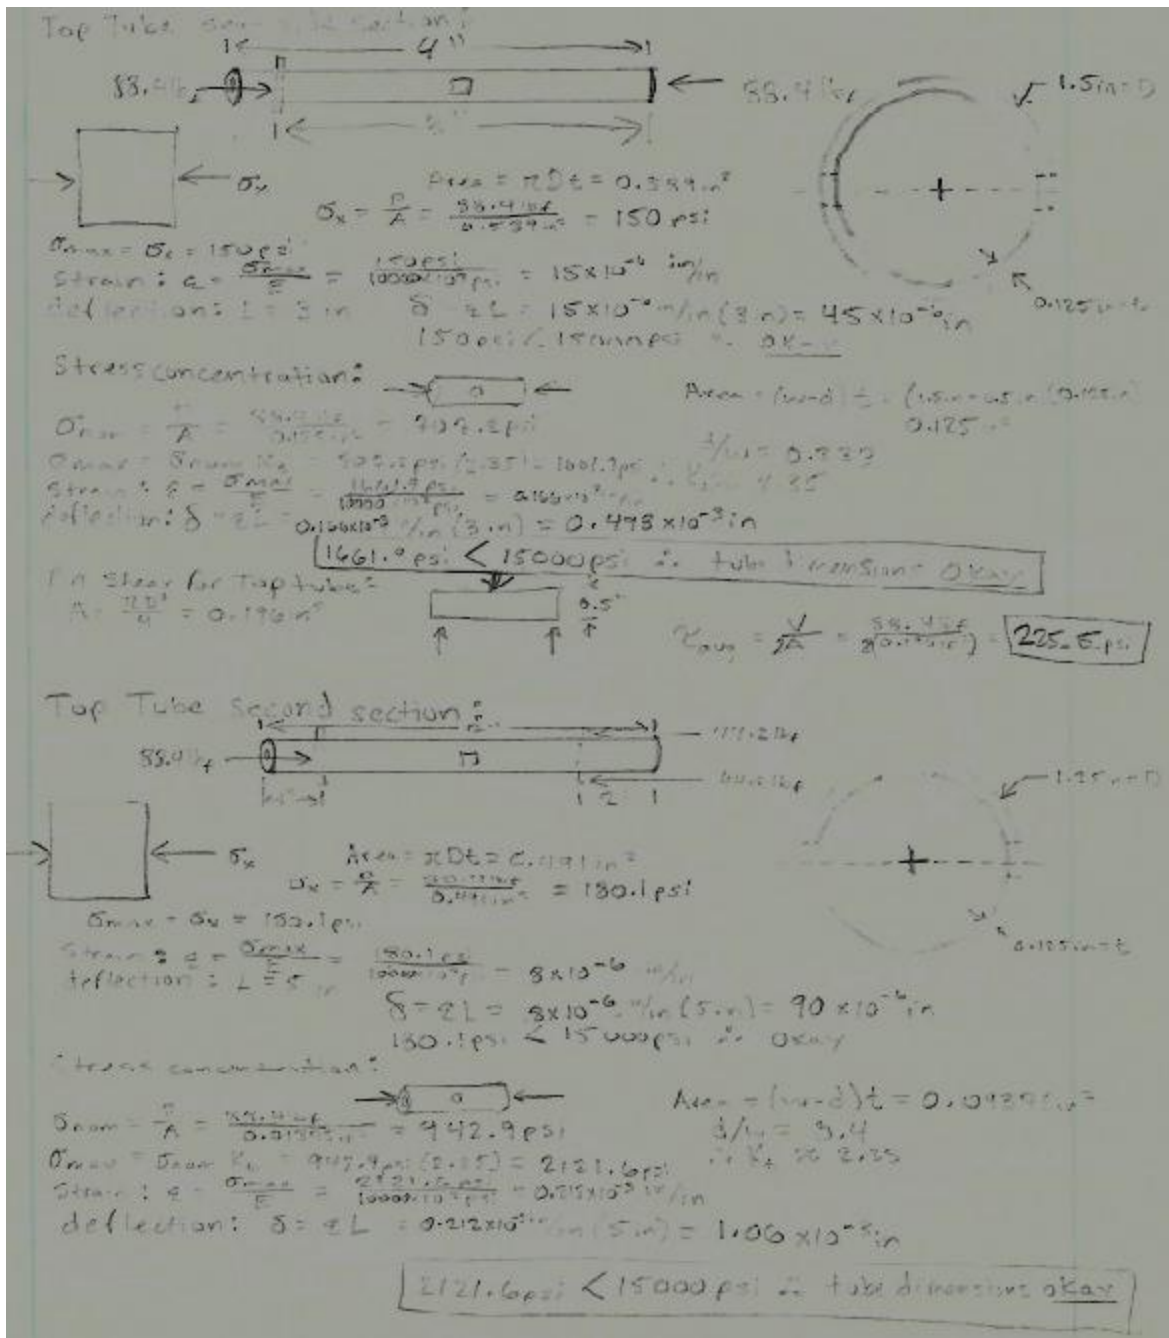 Top Tube section:
4"
88.4lbf
88.4lbf
1.5in=D
3"
σx
Area = πDt = 0.589in²
σx = P/A = 88.4lbf/0.589in² = 150 psi
σmax = σx = 150psi
Strain: ε = σmax/E = 150psi/10000×10³psi = 15×10⁻⁶ in/in
0.125in=t
deflection: L = 3 in δ = εL = 15×10⁻⁶in/in(3in) = 45×10⁻⁶in
150psi < 15000psi ∴ okay
Stress concentration:
Area = (w-d)t = (1.5in-0.5in)(0.125in)
0.125in²
σnom = P/A = 88.4lbf/0.125in² = 707.2psi
d/w = 0.333
σmax = σnom Kt = 707.2psi(2.35) = 1661.9psi ∴ Kt = 2.35
Strain: ε = σmax/E = 1661.9psi/10000×10³psi = 0.166×10⁻³in/in
deflection: δ = εL = 0.166×10⁻³in/in(3in) = 0.498×10⁻³in
1661.9psi < 15000psi ∴ tube dimensions okay
Pin Shear for Top tube:
0.5"
A = πD²/4 = 0.196in²
τavg = V/2A = 88.4lbf/2(0.196in²) = 225.5psi
Top Tube second section:
88.4lbf
2
1.25in=D
σx
Area = πDt = 0.491in²
σx = P/A = 88.4lbf/0.491in² = 180.1psi
σmax = σx = 180.1psi
0.125in=t
Strain: ε = σmax/E = 180.1psi/10000×10³psi = 8×10⁻⁶ in/in
deflection: L = 5 in
δ = εL = 8×10⁻⁶in/in(5in) = 90×10⁻⁶in
180.1psi < 15000psi ∴ okay
Stress concentration:
Area = (w-d)t = 0.09375in²
σnom = P/A = 88.4lbf/0.09375in² = 942.9psi
d/w = 3.4
σmax = σnom Kt = 942.9psi(2.25) = 2121.6psi
∴ Kt ≈ 2.25
Strain: ε = σmax/E = 2121.6psi/10000×10³psi = 0.212×10⁻³in/in
deflection: δ = εL = 0.212×10⁻³in/in(5in) = 1.06×10⁻³in
2121.6psi < 15000psi ∴ tube dimensions okay